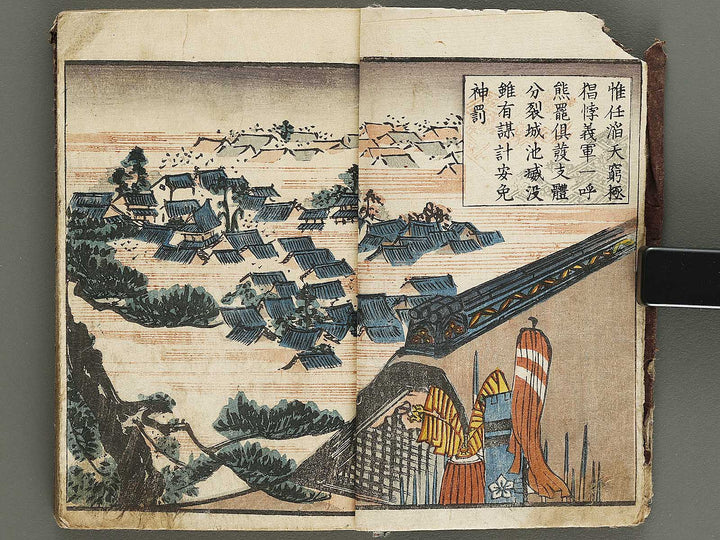 惟任滔天窮極
猖悖義軍一呼
熊羆倶発支體
分裂城池滅没
雖有謀計安免
神罰